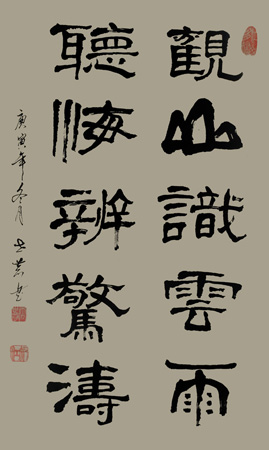 觀山識雲雨
聽海辨驚濤
庚寅年冬月